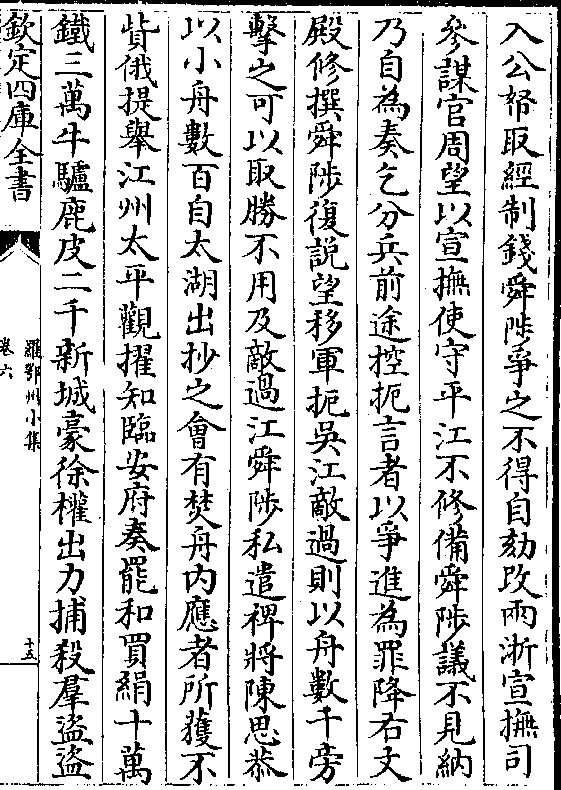 入公帑取經制錢舜陟爭之不得自劾改兩浙宣撫司
參謀官周望以宣撫使守平江不修備舜陟議不見納
乃自為奏乞分兵前途控扼言者以爭進為罪降右文
殿修撰舜陟復說望移軍扼吳江敵過則以舟數千旁
擊之可以取勝不用及敵過江舜陟私遣裨將陳思恭
以小舟數百自太湖出抄之會有焚舟内應者所獲不
貲俄提舉江州太平觀擢知臨安府奏罷和買絹十萬
鐵三萬牛驢鹿皮二千新城豪徐權出力捕殺羣盜盜
欽定四庫全書
羅鄂州小集
卷六
十五